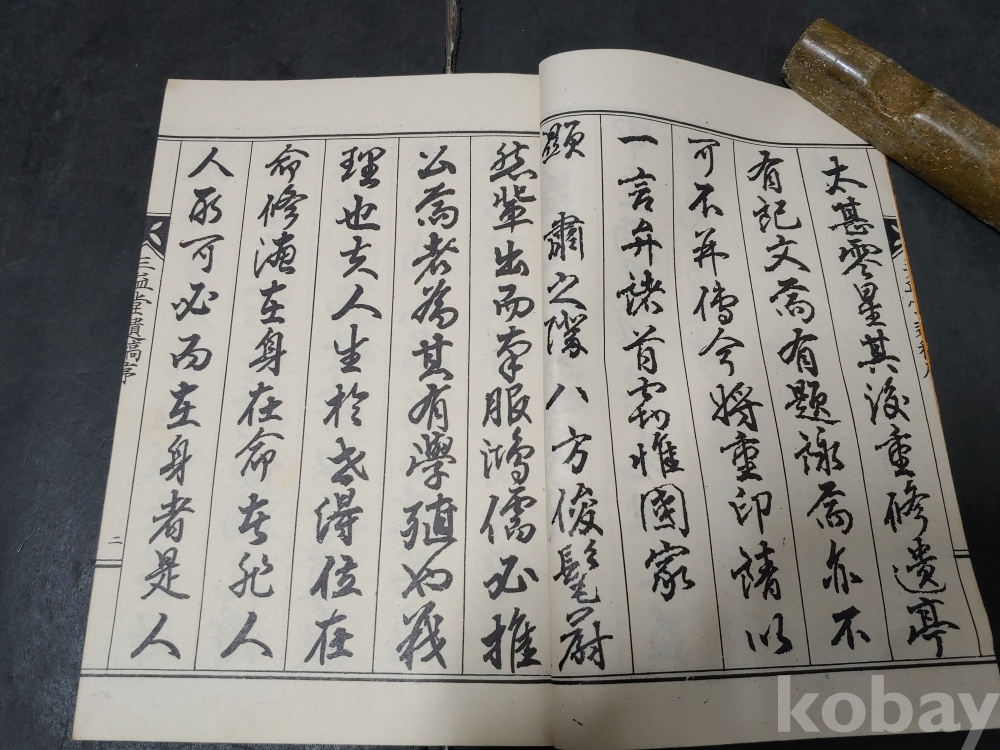 太甚零星其後重修遺亭
有記文焉有題詠焉亦不
可不并傳今將重印請以
一言弁諸首窃惟國家
顯 肅之際八方俊髦蔚
然輩出而素服鴻儒必推
公焉者爲其有學殖如幾
理也夫人生於世得位在
命修德在身在命者非人
人所可必而在身者是人
三益堂遺稿序
二
kobay